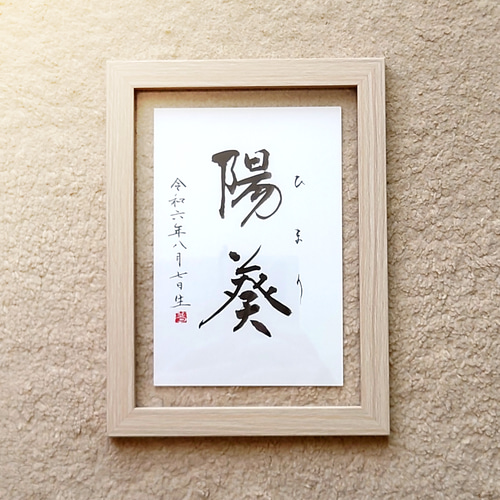 ひまり
陽葵
令和六年八月七日生